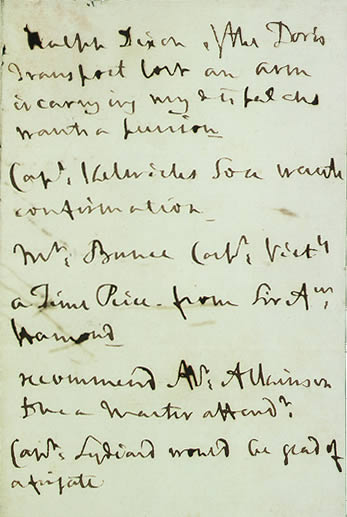 Ralph Dixon, of the Doris
Transport lost an arm
in carrying my dispatches
wants a pension
Capt. Kelwicks Son wants
confirmation
Mr. Bunce Carpr. Victy
a Time Peice from Sir Aw.
Hamond
recommend Mr. Atkinson
for a Master attendt.
Capt. Lydiard would be glad of
a frigate